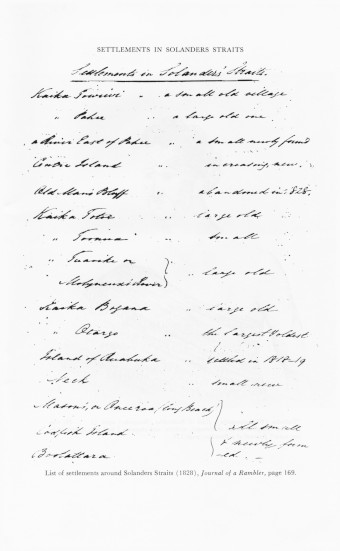 SETTLEMENTS IN SOLANDERS STRAITS
Settlements in Solanders' Straits.
Kaika " a small old village
" Pahee " a large old one
a River East of Pahee " a small newly form'd
Centre Island " increasing, new.
Old Man's Bluff " abandoned in 1828.
Kaika " large old
" " small
" or
Molyneux's River } " large old
Kaika " large old
" Otargo " the largest & oldest
Island of Ruabuka " settled in 1818-19
Neck " small new
Mason's, or (long Beach)
Codfish Island } all small
& newly form
ed. —
List of settlements around Solanders Straits (1828), Journal of a Rambler, page 169.